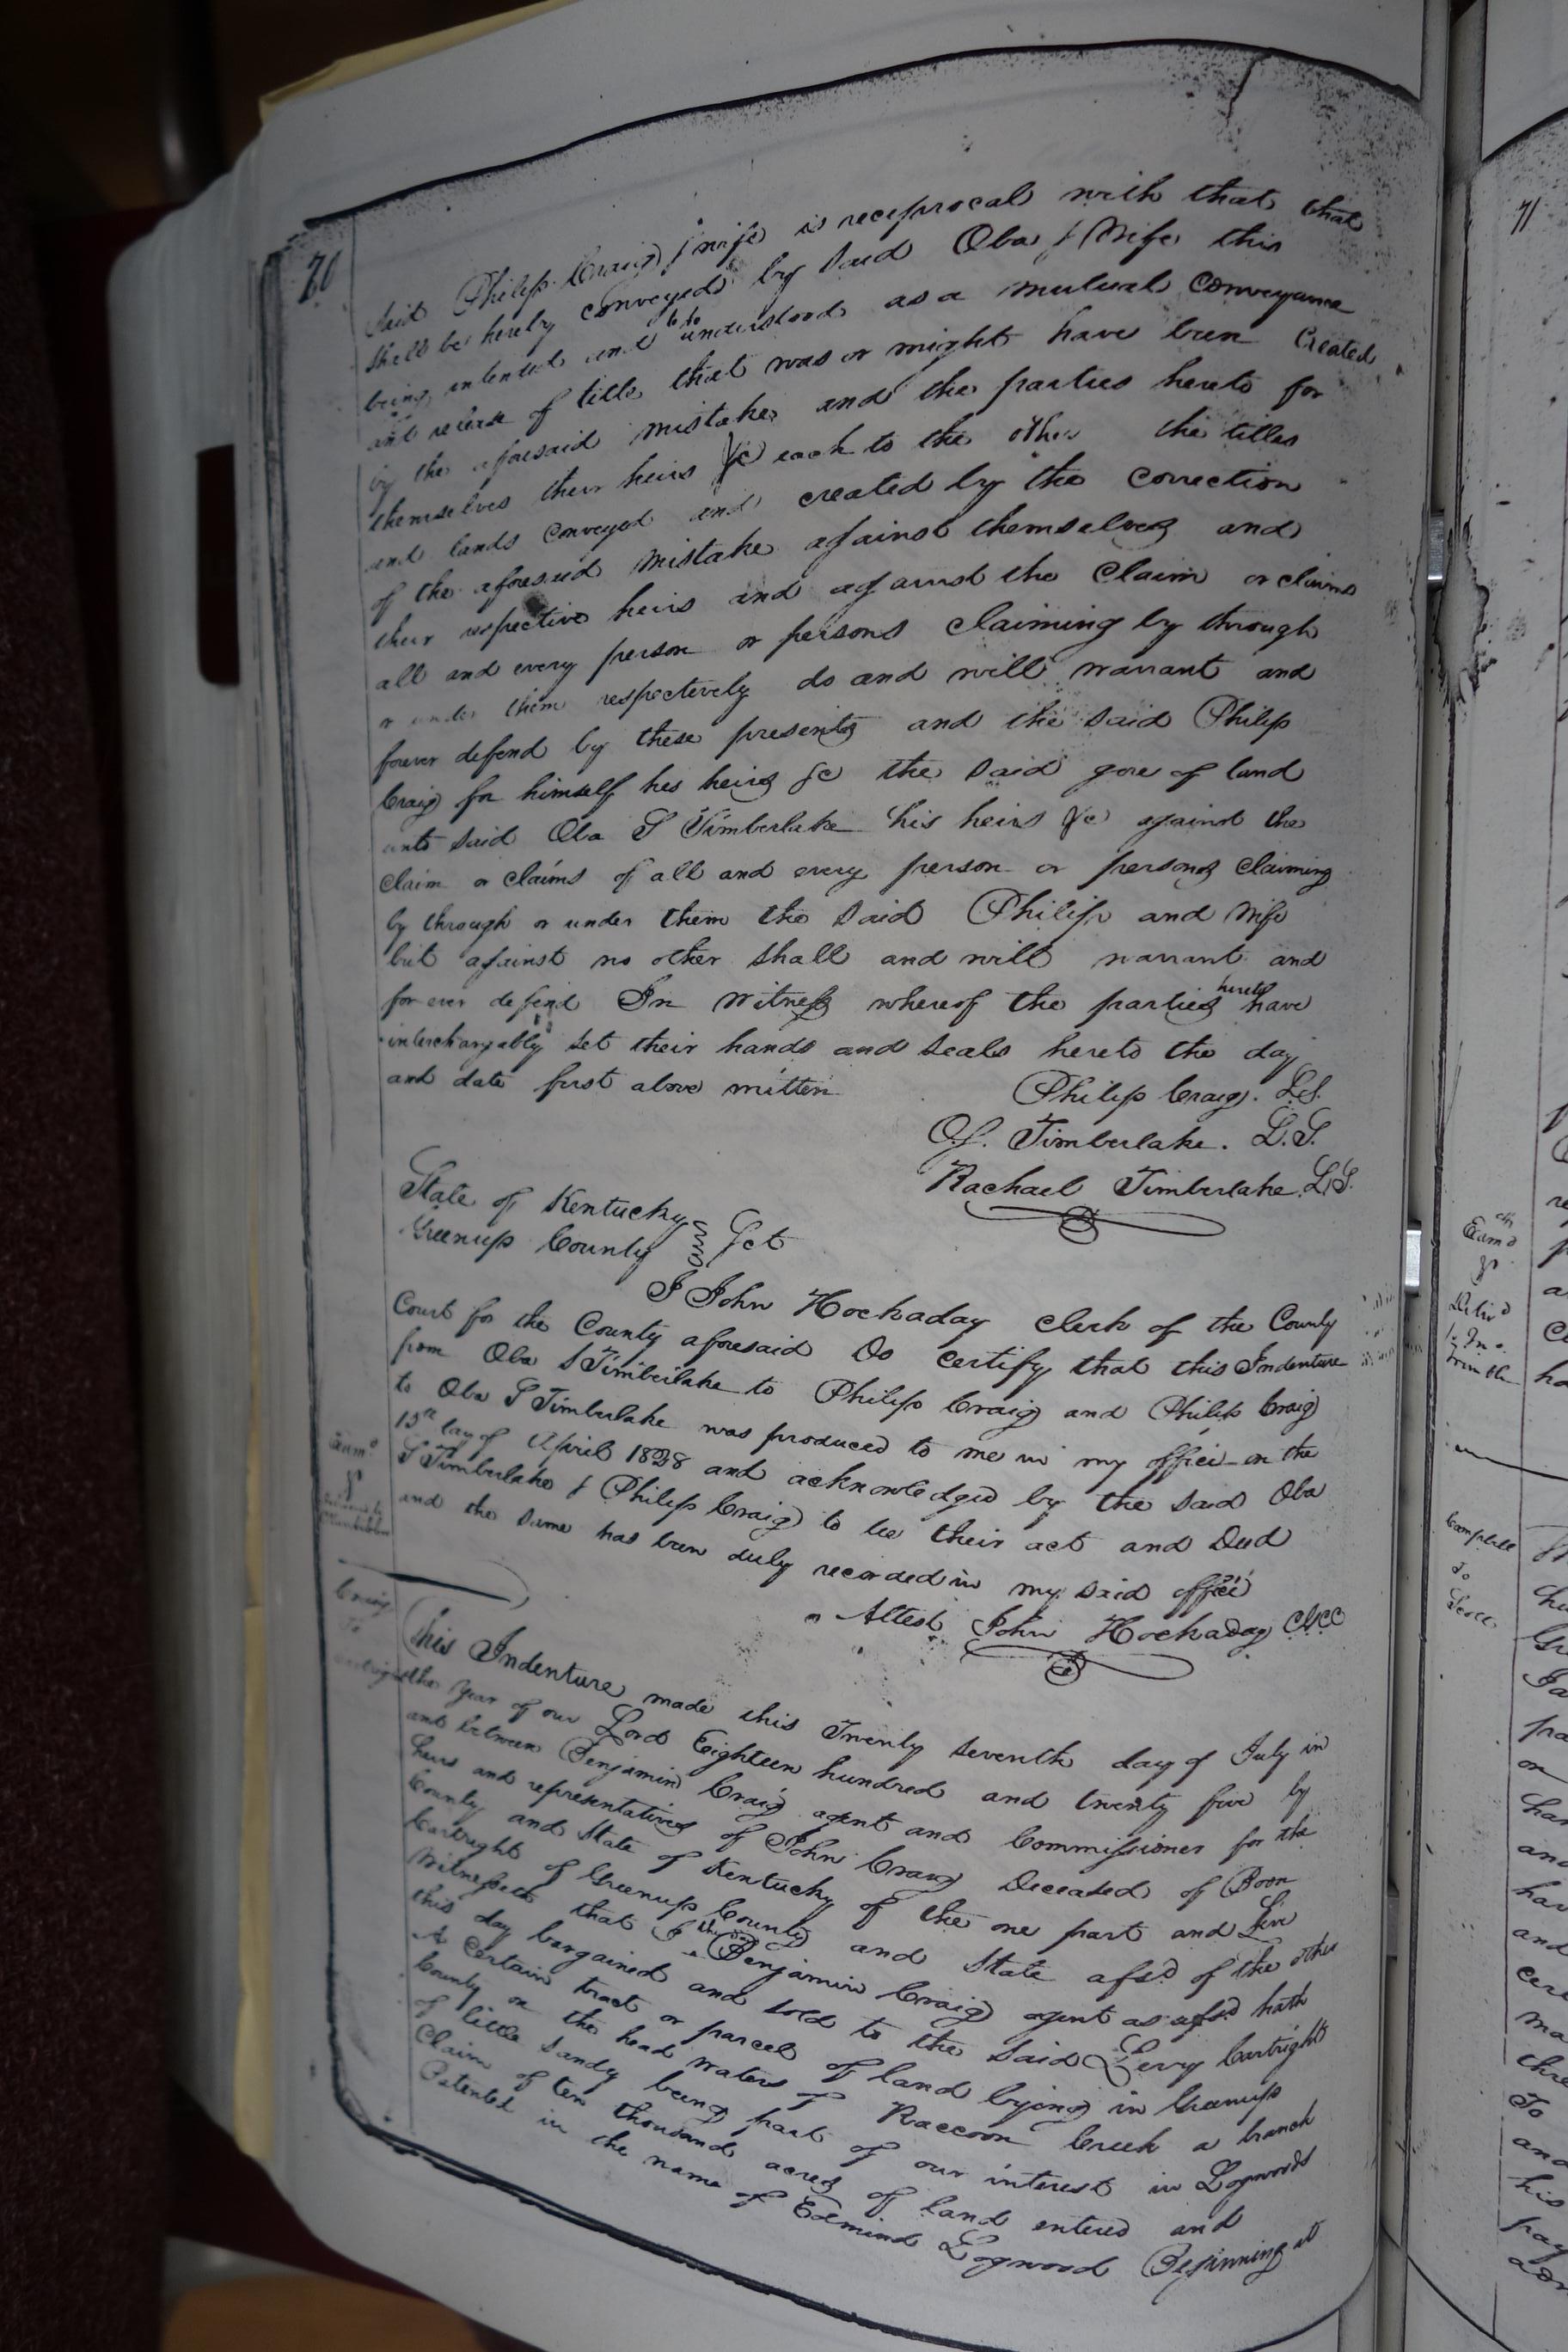 70
said Philip Craig & wife is reciprocal with that that
shall be hereby conveyed by said Oba & Wife this
being intented and to be understood as a mutual conveyance
and release of title that was or might have been created
by the aforesaid mistake and the parties hereto for
themselves their heirs &c each to the other the titles
and lands conveyed and created by the correction
of the aforesaid mistake against themselves and
their respective heirs and against the claim or claims
all and every person or persons claiming by through
or under them respectively do and will warrant and
forever defend by these presents and the said Philip
Craig for himself his heirs &c the said gore of land
unto said Oba S Timberlake his heirs &c against the
claim or claims of all and every person or persons claiming
by through or under them the said Philip and Wife
but against no other shall and will warrant and
for ever defend In witness whereof the parties hereto have
interchangably set their hands and seals hereto the day
and date first above written
Philip Craig. L.S.
O.S. Timberlake. L.S.
Rachael Timberlake. L.S.
State of Kentucky
Greenup County Sct
I John Hockaday clerk of the County
Court for the County aforesaid Do certify that this Indenture
from Oba S Timberlake to Philip Craig and Philip Craig
to Oba S Timberlake was produced to me in my office on the
15th day of April 1828 and acknowledged by the said Oba
S Timberlake & Philip Craig to be their act and Deed
and the same has been duly recorded in my said office
Attest John Hockaday CGCC
Exmd
Craig
To
This Indenture made this Twenty seventh day of July in
the year of our Lord Eighteen hundred and twenty five by
and between Benjamin Craig agent and Commissioner for the
heirs and representatives of John Craig Deceased of Boon
County and State of Kentucky of the one part and
Cartright of Greenup County and State afsd of the other
Witnesseth that I the sd Benjamin Craig agent as afsd hath
this day bargained and sold to the said Levy Cartright
A certain tract or parcel of land lying in Greenup
County on the head waters of Raccoon Creek a branch
of little Sandy being part of our interest in Logwoods
Claim of ten thousand acres of land entered and
Patented in the name of Edmund Logwood Beginning at
71
Exmd
Delivd
Campbell
To
Scott